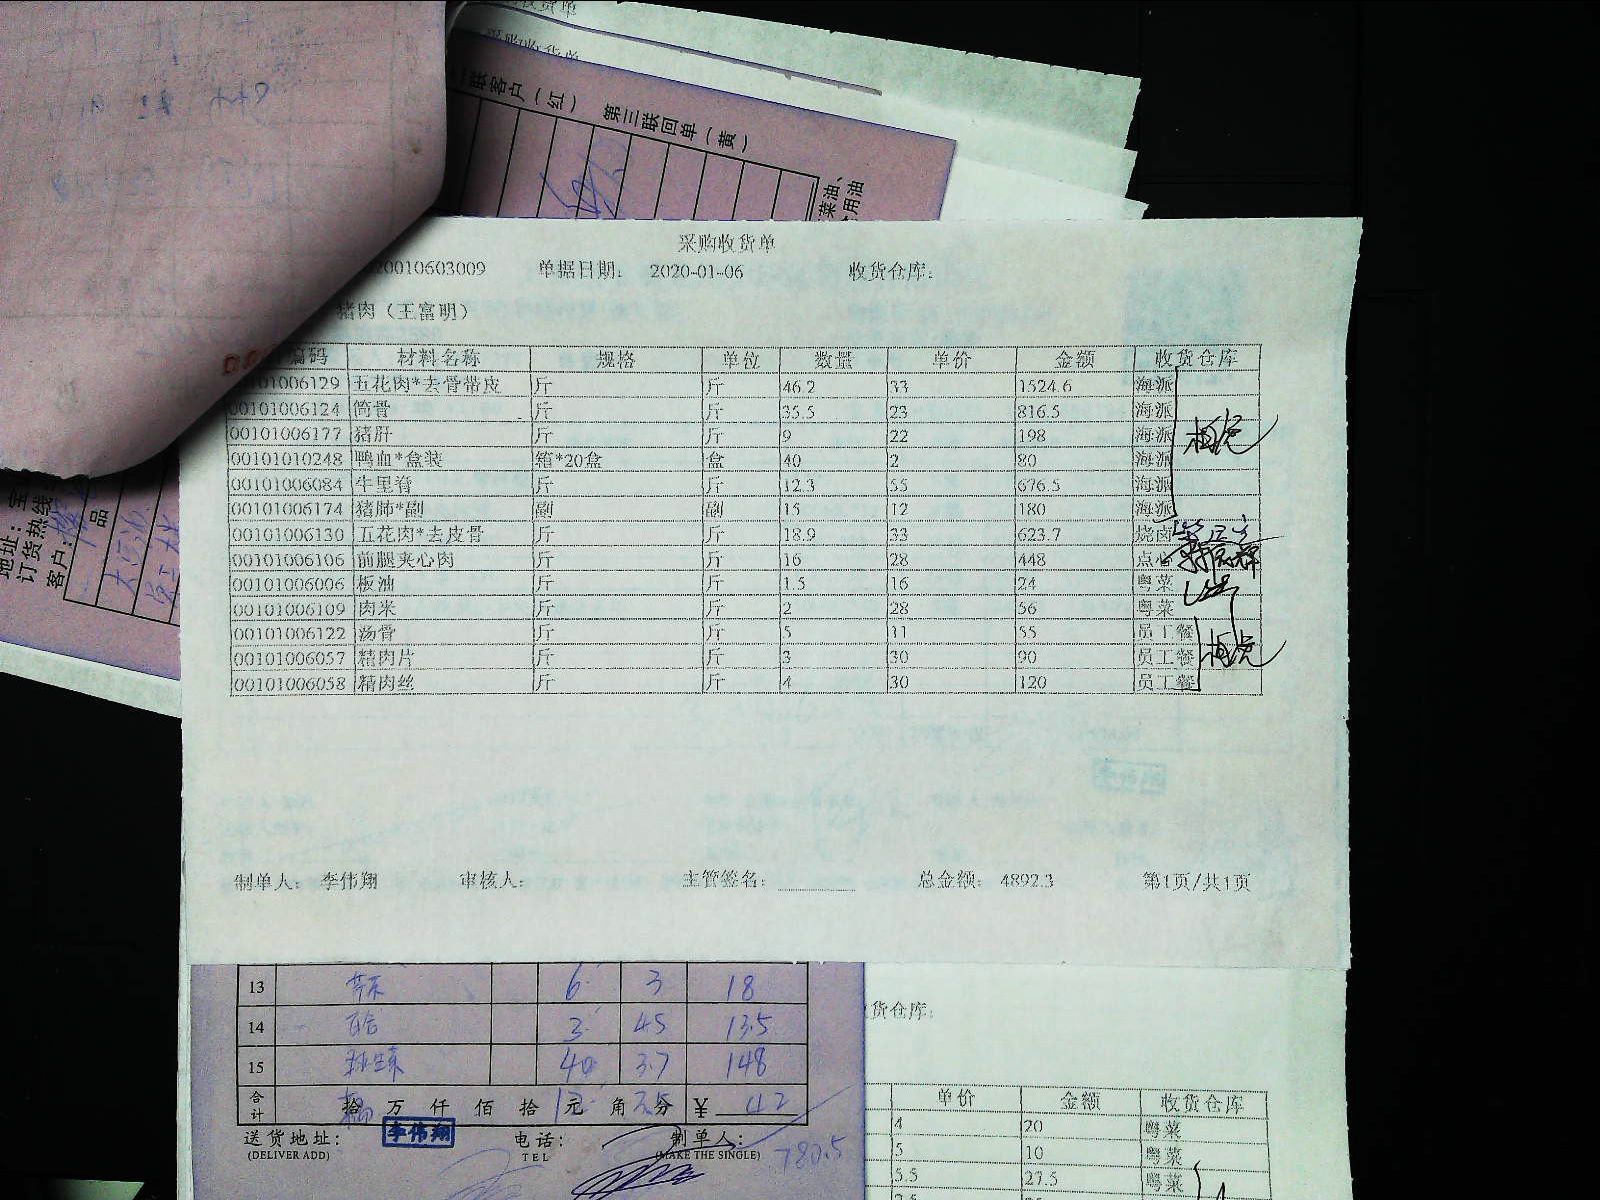 购收货单
采购收货单
联客户（红） 第三联回单（黄）
菜油、
食用油
采购收货单
20010603009 单据日期： 2020-01-06 收货仓库：
猪肉（王富明）
编码 材料名称 规格 单位 数量 单价 金额 收货仓库
101006129 五花肉*去骨带皮 斤 斤 46.2 33 1524.6 海派
00101006124 筒骨 斤 斤 35.5 23 816.5 海派
00101006177 猪肝 斤 斤 9 22 198 海派
00101010248 鸭血*盒装 箱*20盒 盒 40 2 80 海派
00101006084 牛里脊 斤 斤 12.3 55 676.5 海派
00101006174 猪肺*副 副 副 15 12 180 海派
00101006130 五花肉*去皮骨 斤 斤 18.9 33 623.7 烧卤
00101006106 前腿夹心肉 斤 斤 16 28 448 点心
00101006006 板油 斤 斤 1.5 16 24 粤菜
00101006109 肉米 斤 斤 2 28 56 粤菜
00101006122 汤骨 斤 斤 5 11 55 员工餐
00101006057 精肉片 斤 斤 3 30 90 员工餐
00101006058 精肉丝 斤 斤 4 30 120 员工餐
制单人： 李伟翔 审核人： 主管签名： 总金额： 4892.3 第1页/共1页
地址：宝
订货热线
客户：
品
13 6 3 18
14 3 4.5 13.5
15 40 3.7 148
合计 拾 万 仟 佰 拾 元 角 分 ¥ 42
送货地址： 李伟翔 电话： 制单人：
(DELIVER ADD) TEL (MAKE THE SINGLE) 780.5
货仓库：
单价 金额 收货仓库
4 20 粤菜
5 10 粤菜
5.5 27.5 粤菜